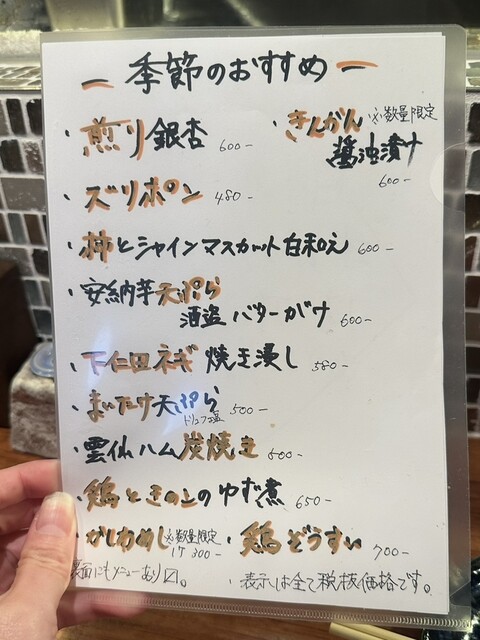 季節のおすすめ
・煎り銀杏 600-
・きんかん ※数量限定
醤油漬け
600-
・ズリポン 480-
・柿とシャインマスカット白和え 600-
・安納芋天ぷら
酒盗バターがけ 600-
・下仁田ネギ 焼き浸し 580-
・まいたけ天ぷら 500-
トリュフ塩
・雲仙ハム炭焼き 600-
・鶏ときのこのゆず煮 650-
・かしわめし ※数量限定
1ケ 300-
・鶏ぞうすい 700-
裏面にもメニューあり〼。
・表示は全て税抜価格です。